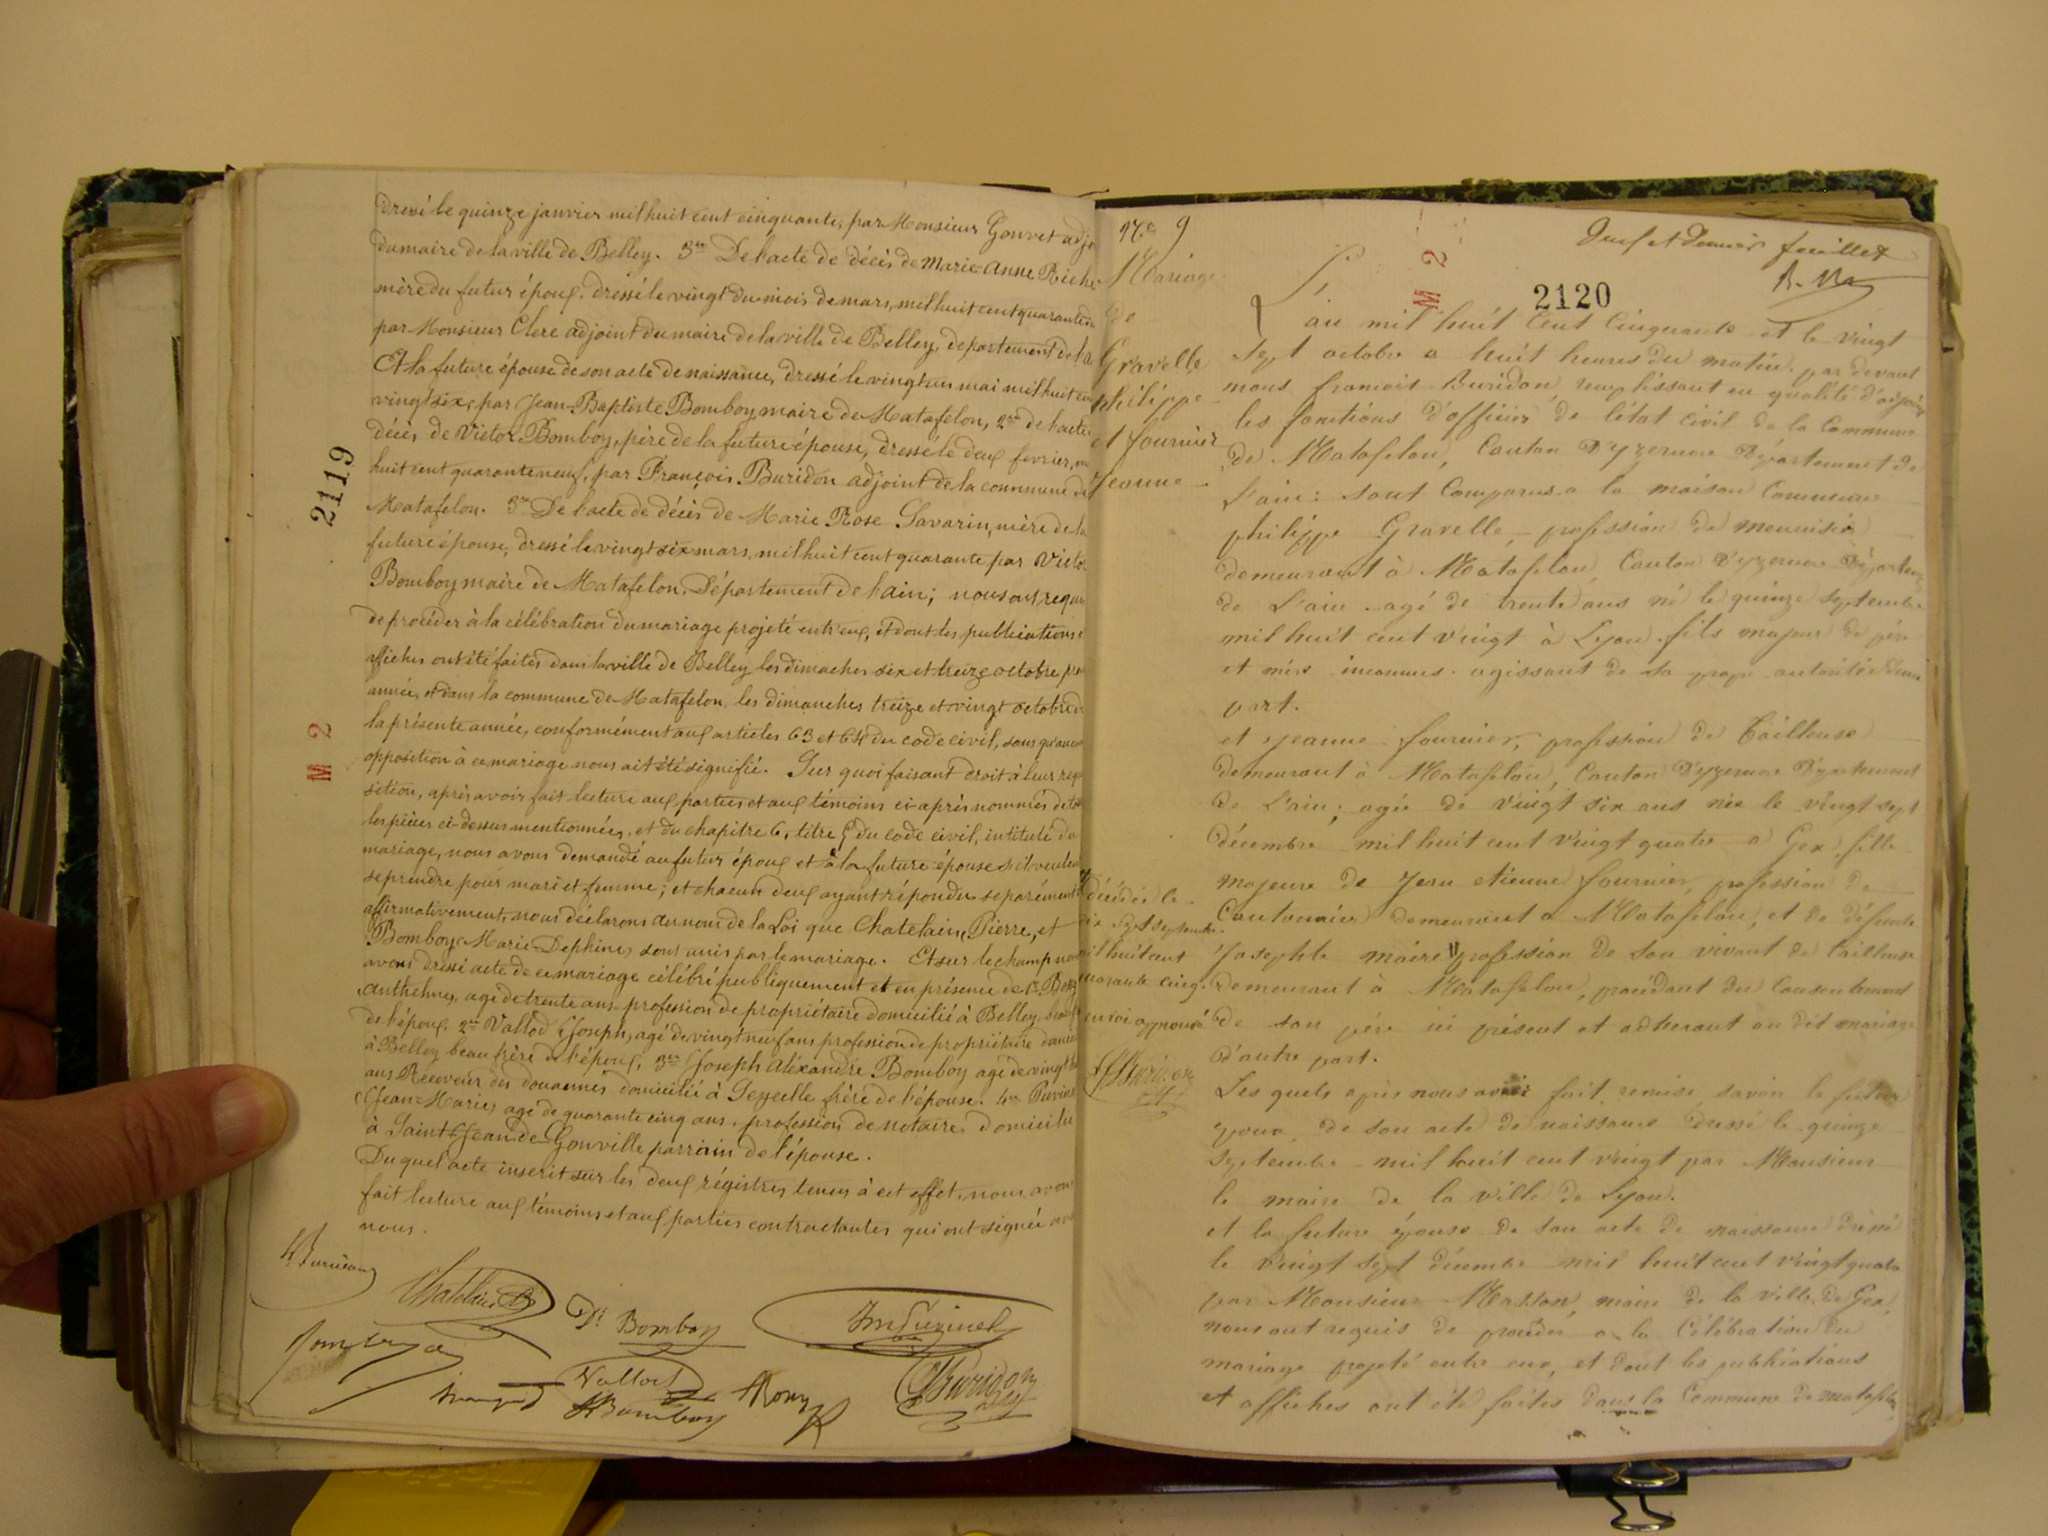 dressé le quinze janvier mil huit cent cinquante, par Monsieur Gouvet adjt
du maire de la ville de Belley. 3me De l'acte de décès de Marie Anne Riche
mère du futur époux. dressé le vingt du mois de mars, mil huit cent quarante
par Monsieur Clerc adjoint du maire de la ville de Belley, département de l'a
Et la future épouse de son acte de naissance, dressé le vingt un mai mil huit cent
vingt six, par Jean-Baptiste Bomboy maire de Matafelon, 2me de l'acte
décès de Victor Bomboy, père de la future épouse, dressé le deux fevrier, m
huit cent quarante neuf, par François Buridon adjoint de la commune de
Matafelon. 3me De l'acte de décès de Marie Rose Savarin, mère de la
future épouse, dressé le vingt six mars, mil huit cent quarante par Victor
Bomboy maire de Matafelon, Département de l'ain; nous ont requi
de procéder à la célébration du mariage projeté entr'eux, et dont les publications
affiches ont été faites dans la ville de Belley les dimaches six et treize octobre
année, et dans la commune de Matafelon, les dimanches treize et vingt octobre de
la présente année, conformément aux articles 63 et 64 du code civil, sans qu'aucu
opposition à ce mariage nous ait été signifié. Sur quoi faisant droit à leur requi
sition, après avoir fait lecture aux parties et aux témoins ci-après nommés de to
les pièces ci-dessus mentionnées, et du chapitre 6, titre 5 du code civil, intitulé du
mariage, nous avons demandé au futur époux et à la future épouse s'il veulent
se prendre pour mari et femme; et chacun deux ayant répondu séparément
affirmativement, nous déclarons au nom de la Loi que Chatelain Pierre, et
Bomboy Marie Dephine, sont unis par le mariage. Et sur le champ nous
avons dressé acte de ce mariage célébré publiquement et en présence de 1er
Anthelme, agé de trente ans profession de propriétaire domicilié à Belley
de l'époux, 2me Vallod Joseph, agé de vingt neuf ans profession de propriétaire domici
à Belley beau frère de l'époux, 3me Joseph Aléxandre Bomboy agé de vingt
ans Receveur des douannes domicilié à frère de l'épouse. 4me
Jean-Marie, agé de quarante cinq ans, profession de notaire domicilié
à Saint Jean de Gonville parrain de l'épouse.
Du quel acte inscrit sur les deux régistres tenus à cet effet, nous avons
fait lecture aux témoins et aux parties contractantes qui ont signée av
nous.
2119
M 2
Chatelain
Dl Bomboy
Vallod
Bomboy
Rony
Buridon
adjt
No 9
Mariage
de
Gravelle
philippe
et fournier
Jeanne
neuf et dernier feuillet
M 2
2120
L'an mil huit cent cinquante et le vingt
sept octobre a huit heures du matin. par devant
nous francois Buridon, remplissant en qualité d'adjoint
les fonctions d'officier de l'état civil de la commune
de Matafelon, Canton D'yzernore Département de
L'ain: sont comparus a la maison commune
philippe Gravelle, profession de menuisier
demeurant à Matafelon, Canton D'yzernore Départemt
de L'ain agé de trente ans né le quinze septembre
mil huit cent vingt à Lyon. fils majeur de père
et mère inconnus. agissant de sa propre autorité d'une
part.
et Jeanne fournier, profession de Tailleuse
demeurant à Matafelon, Canton D'yzernore Département
de L'ain; agée de vingt six ans née le vingt sept
décembre mil huit cent vingt quatre a Gex, fille
majeure de Jean etienne fournier, profession de
Cantonnier demeurant a Matafelon, et de défunte
Josephte maire profession de son vivant de tailleuse
demeurant à Matafelon, procédant du consentement
de son père ici présent et adhérant au dit mariage
d'autre part.
décédée le
dix sept septembre
mil huit cent
quarante cinq.
renvoi approuvé
Buridon
adjt
Les quels après nous avoir fait remise, savoir le futur
époux, de son acte de naissance dressé le quinze
septembre mil huit cent vingt par Monsieur
le maire de la ville de Lyon.
et la future épouse de son acte de naissance dressé
le vingt sept décembre mil huit cent vingt quatre
par Monsieur Masson, maire de la ville de Gex,
nous ont requis de procéder a la célébration du
mariage projeté entre eux, et dont les publications
et affiches ont été faites dans la commune de matafelon